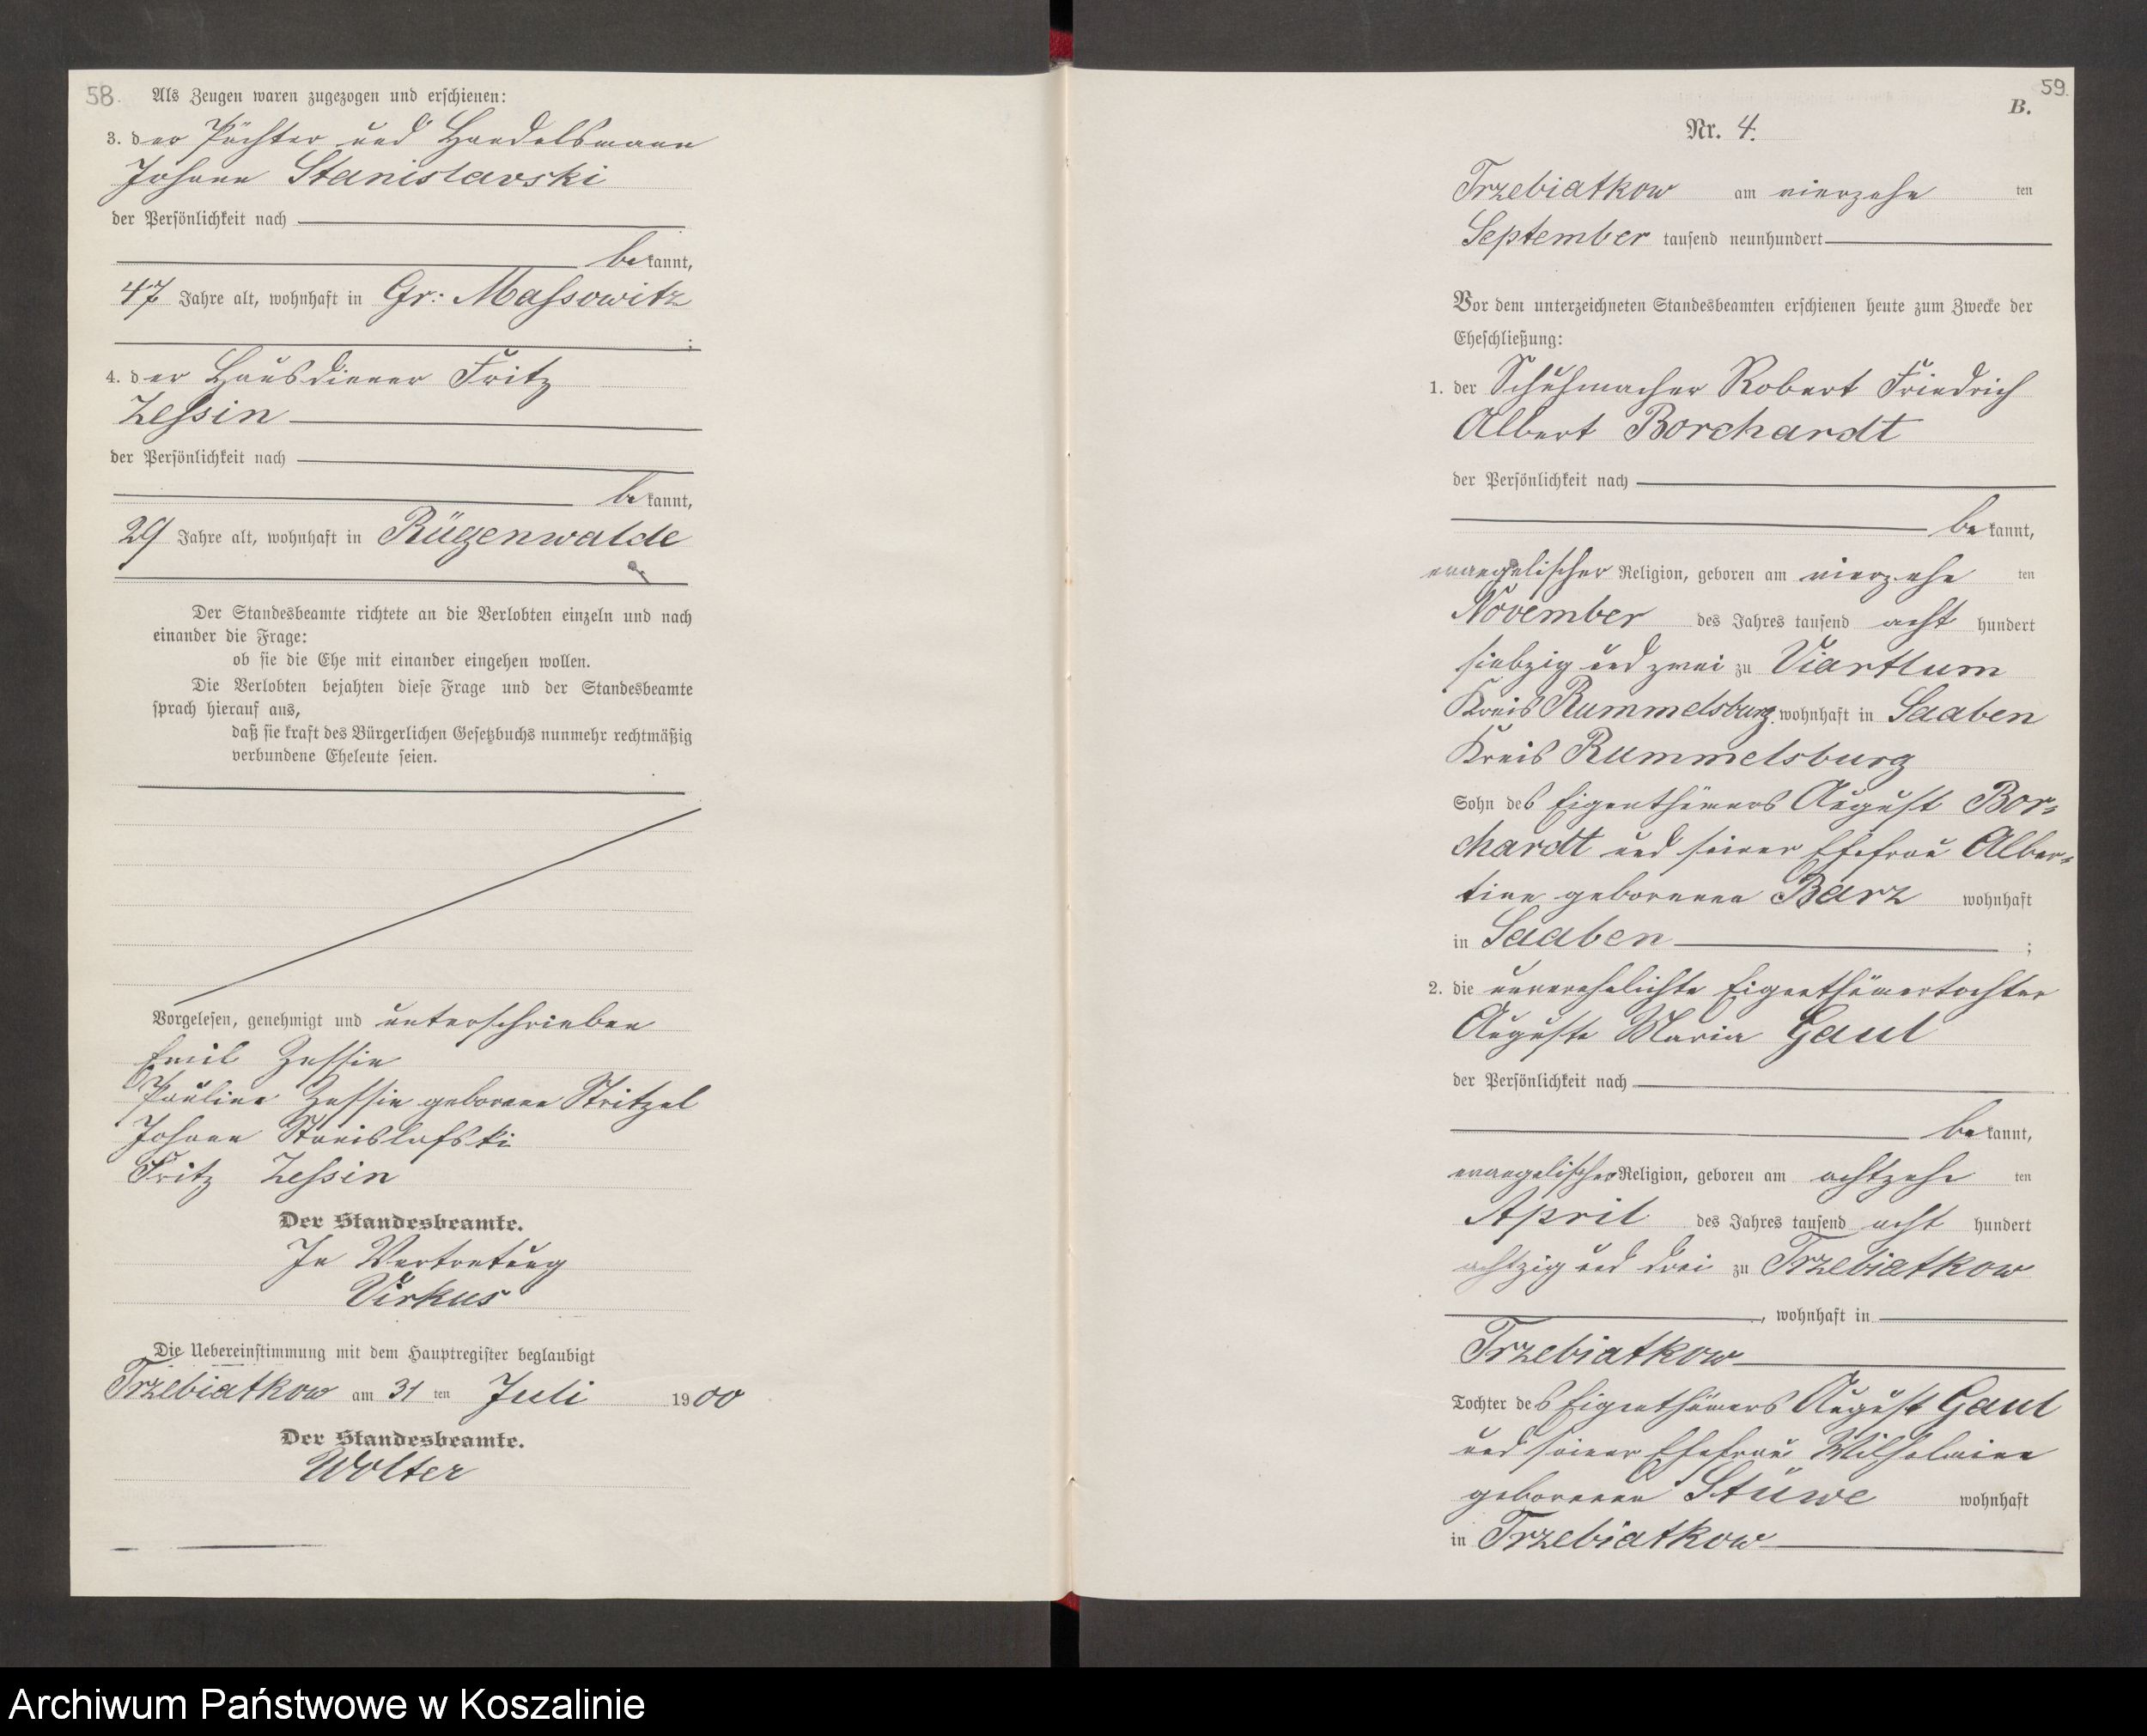 58.
Als Zeugen waren zugezogen und erschienen:
3. der Pächter und Handelsmann
Johann Stanislavski
der Persönlichkeit nach
bekannt,
47 Jahre alt, wohnhaft in Gr: Massowitz
;
4. der Hausdiener Fritz
Zessin
der Persönlichkeit nach
bekannt,
29 Jahre alt, wohnhaft in Rügenwalde
Der Standesbeamte richtete an die Verlobten einzeln und nach
einander die Frage:
ob sie die Ehe mit einander eingehen wollen.
Die Verlobten bejahten diese Frage und der Standesbeamte
sprach hierauf aus,
daß sie kraft des Bürgerlichen Gesetzbuchs nunmehr rechtmäßig
verbundene Eheleute seien.
Vorgelesen, genehmigt und unterschrieben
Emil Zessin
Pauline Zessin geborene Stritzel
Johann Stanislafski
Fritz Zessin
Der Standesbeamte.
In Vertretung
Virkus
Die Uebereinstimmung mit dem Hauptregister beglaubigt
Trzebiatkow am 31 ten Juli 1900
Der Standesbeamte.
Wolter
59.
B.
Nr. 4.
Trzebiatkow am vierzehn ten
September tausend neunhundert
Vor dem unterzeichneten Standesbeamten erschienen heute zum Zwecke der
Eheschließung:
1. der Schuhmacher Robert Friedrich
Albert Borchardt
der Persönlichkeit nach
bekannt,
evangelischer Religion, geboren am vierzehn ten
November des Jahres tausend acht hundert
siebzig und zwei zu Viartlum
Kreis Rummelsburg, wohnhaft in Saaben
Kreis Rummelsburg
Sohn des Eigenthümers August Bor-
chardt und seiner Ehefrau Alber-
tine geborenen Barz wohnhaft
in Saaben ;
2. die unverehelichte Eigenthümertochter
Auguste Marie Gaul
der Persönlichkeit nach
bekannt,
evangelischer Religion, geboren am achtzehn ten
April des Jahres tausend acht hundert
achtzig und drei zu Trzebiatkow
, wohnhaft in
Trzebiatkow
Tochter des Eigenthümers August Gaul
und seiner Ehefrau Wilhelmine
geborenen Stüwe wohnhaft
in Trzebiatkow
Archiwum Państwowe w Koszalinie